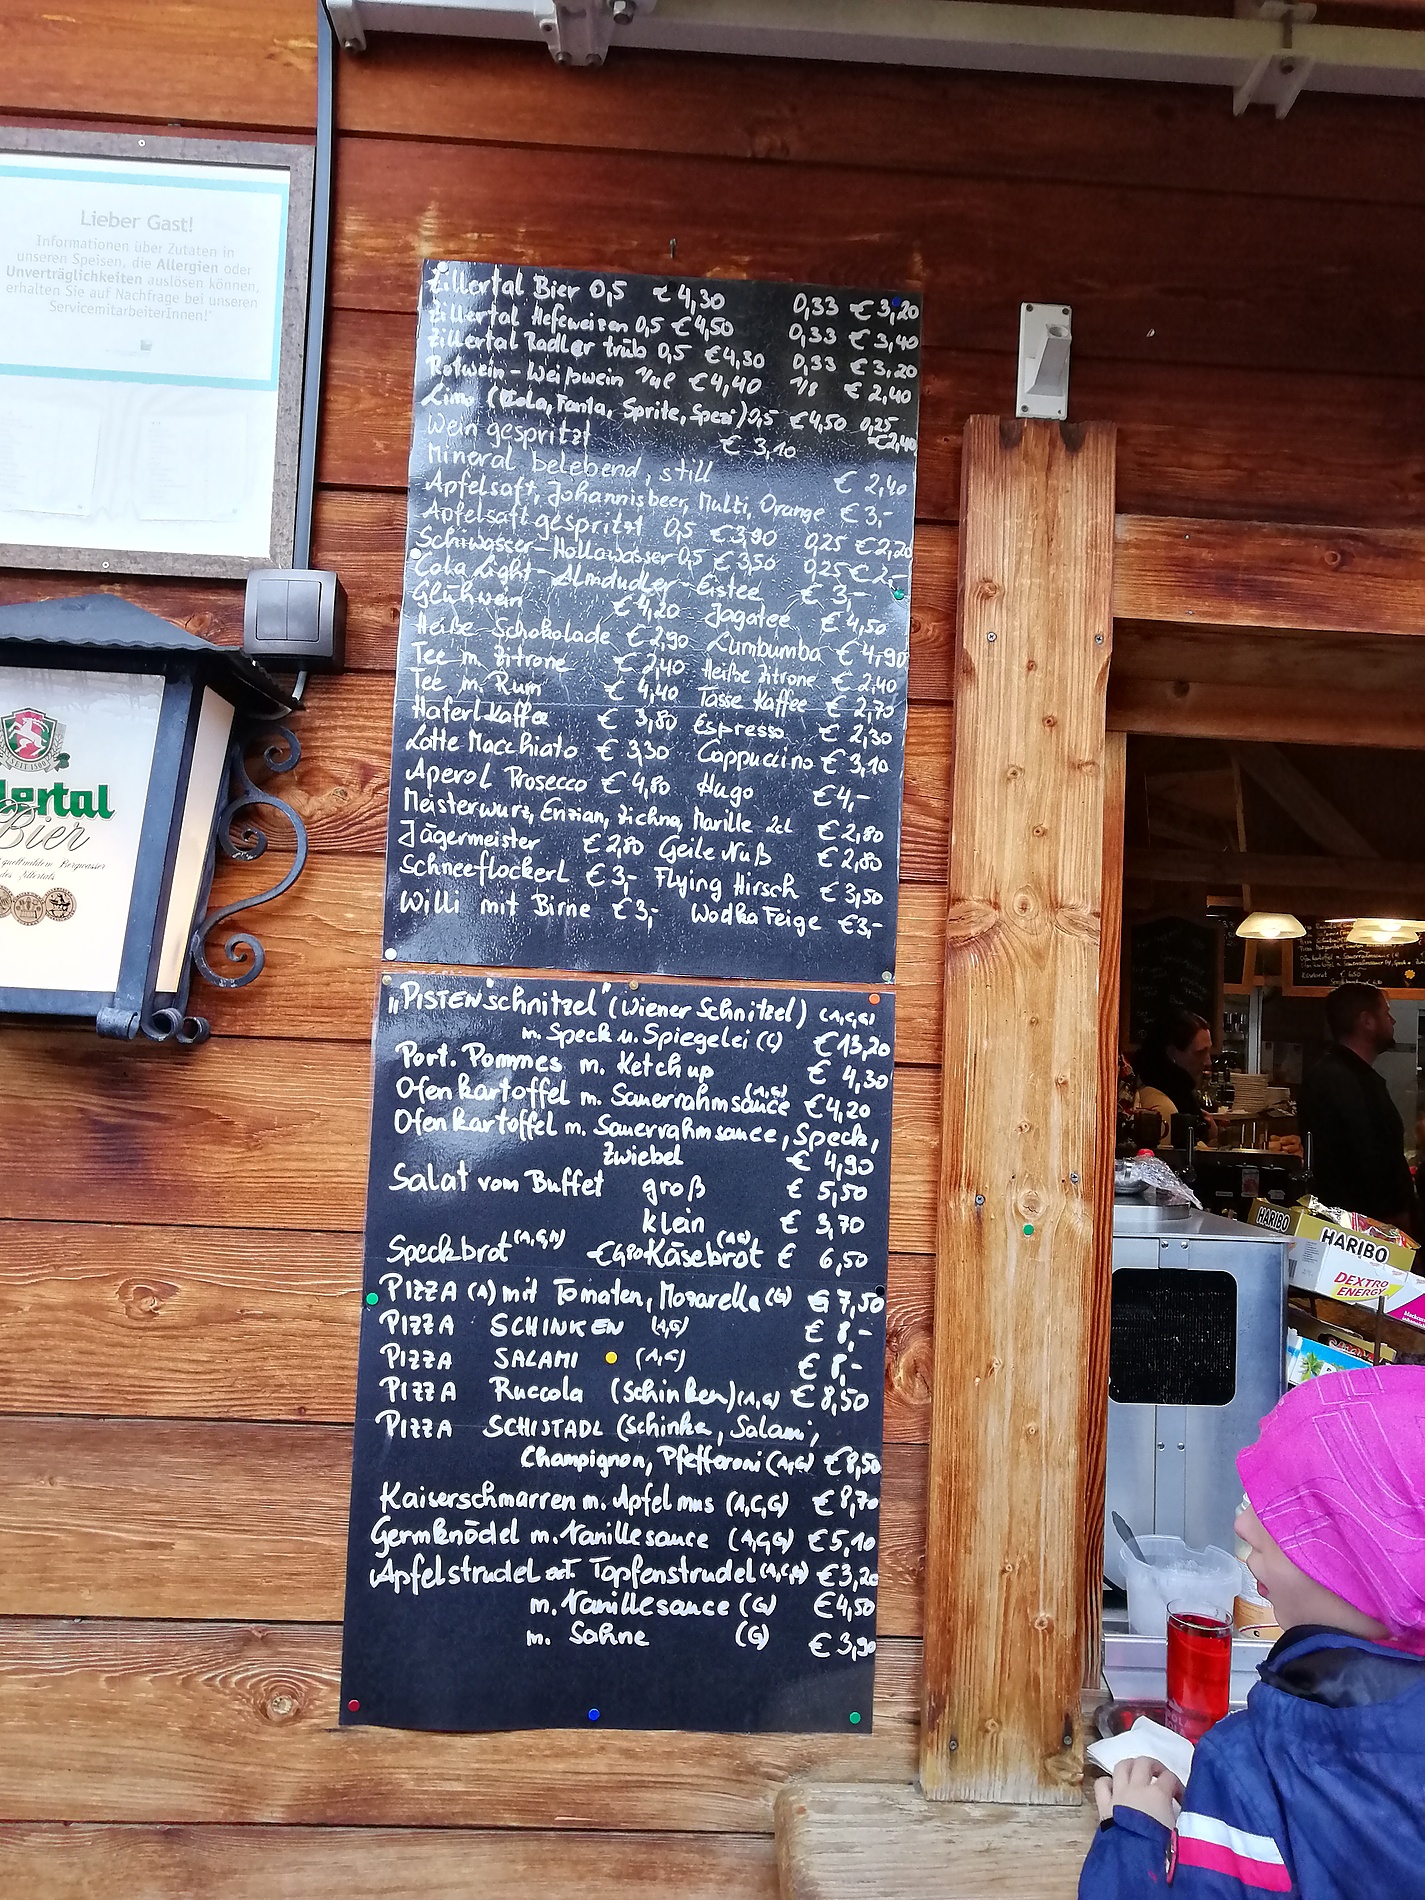 Lieber Gast!
Informationen über Zutaten in
unseren Speisen, die Allergien oder
Unverträglichkeiten auslösen können,
erhalten Sie auf Nachfrage bei unseren
ServicemitarbeiterInnen!
Bier
Zillertal Bier 0,5 € 4,30 0,33 € 3,20
Zillertal Hefeweizen 0,5 € 4,50 0,33 € 3,40
Zillertal Radler trüb 0,5 € 4,30 0,33 € 3,20
Rotwein - Weißwein € 4,40 1/8 € 2,40
Limo (Cola, Fanta, Sprite, Spezi) 0,5 € 4,50 0,25 € 2,40
Wein gespritzt € 3,10
Mineral belebend, still € 2,40
Apfelsaft, Johannisbeer, Multi, Orange € 3,-
Apfelsaft gespritzt 0,5 € 3,90 0,25 € 2,20
Schiwasser - Hollawasser 0,5 € 3,50 0,25 € 2,-
Cola Light - Almdudler - Eistee € 3,-
Glühwein € 4,20 Jagatee € 4,50
Heiße Schokolade € 2,90 Lumbumba € 4,90
Tee m. Zitrone € 2,40 Heiße Zitrone € 2,40
Tee m. Rum € 4,40 Tasse Kaffee € 2,70
Haferl Kaffee € 3,80 Espresso € 2,30
Latte Macchiato € 3,30 Cappuccino € 3,10
Aperol Prosecco € 4,80 Hugo € 4,-
Meisterwurz, Enzian, Zirbn, Marille 2cl € 2,80
Jägermeister € 2,80 Geile Nuß € 2,80
Schneeflockerl € 3,- Flying Hirsch € 3,50
Willi mit Birne € 3,- Wodka Feige € 3,-
„PISTEN schnitzel" (Wiener Schnitzel) (A,C,G)
m. Speck u. Spiegelei (C) € 13,20
Port. Pommes m. Ketchup € 4,30
Ofenkartoffel m. Sauerrahmsauce (A,G) € 4,20
Ofenkartoffel m. Sauerrahmsauce, Speck,
Zwiebel € 4,90
Salat vom Buffet groß € 5,50
klein € 3,70
Speckbrot Käsebrot € 6,50
PIZZA (A) mit Tomaten, Mozarella (G) € 7,50
PIZZA SCHINKEN (A,G) € 8,-
PIZZA SALAMI (A,G) € 8,-
PIZZA Ruccola (Schinken) (A,G) € 8,50
PIZZA SCHISTADL (Schinke, Salami,
Champignon, Pfefferoni (A,G) € 8,50
Kaiserschmarren m. Apfelmus (A,C,G) € 8,70
Germknödel m. Vanillesauce (A,C,G) € 5,10
Apfelstrudel od. Topfenstrudel € 3,20
m. Vanillesauce (G) € 4,50
m. Sahne (G) € 3,90
HARIBO
HARIBO
DEXTRO
ENERGY